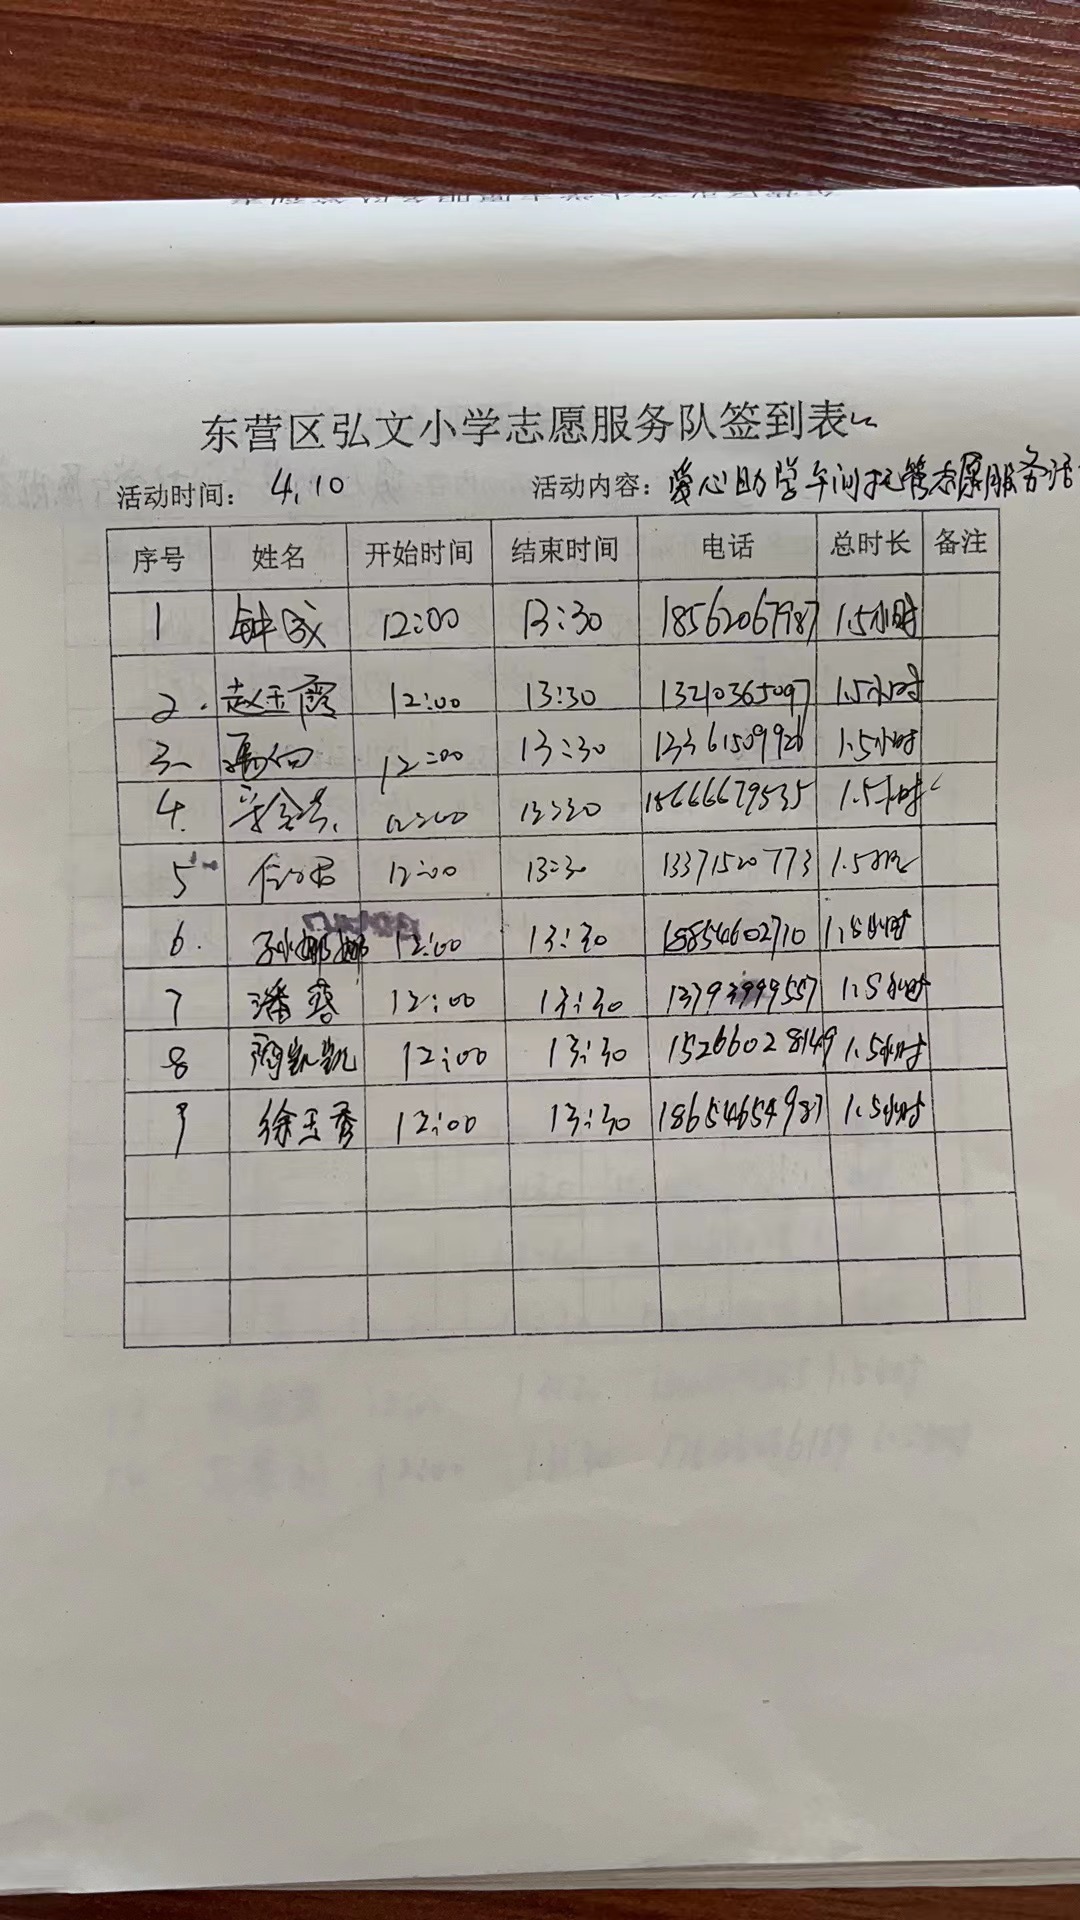 东营区弘文小学志愿服务队签到表
活动时间: 4.10 活动内容: 爱心助学午间托管志愿服务活
序号 姓名 开始时间 结束时间 电话 总时长 备注
1 钟成 12:00 13:30 18562067987 1.5小时
2. 赵玉霞 12:00 13:30 13210365097 1.5小时
3. 12:00 13:30 13361509926 1.5小时
4. 12:00 13:30 18666679535 1.5小时
5 12:00 13:30 13371520773 1.5小时
6. 孙娜娜 12:00 13:30 18854602710 1.5小时
7 潘蓉 12:00 13:30 13793999557 1.5小时
8 陶凯凯 12:00 13:30 15266028149 1.5小时
9 徐玉秀 12:00 13:30 18654654987 1.5小时